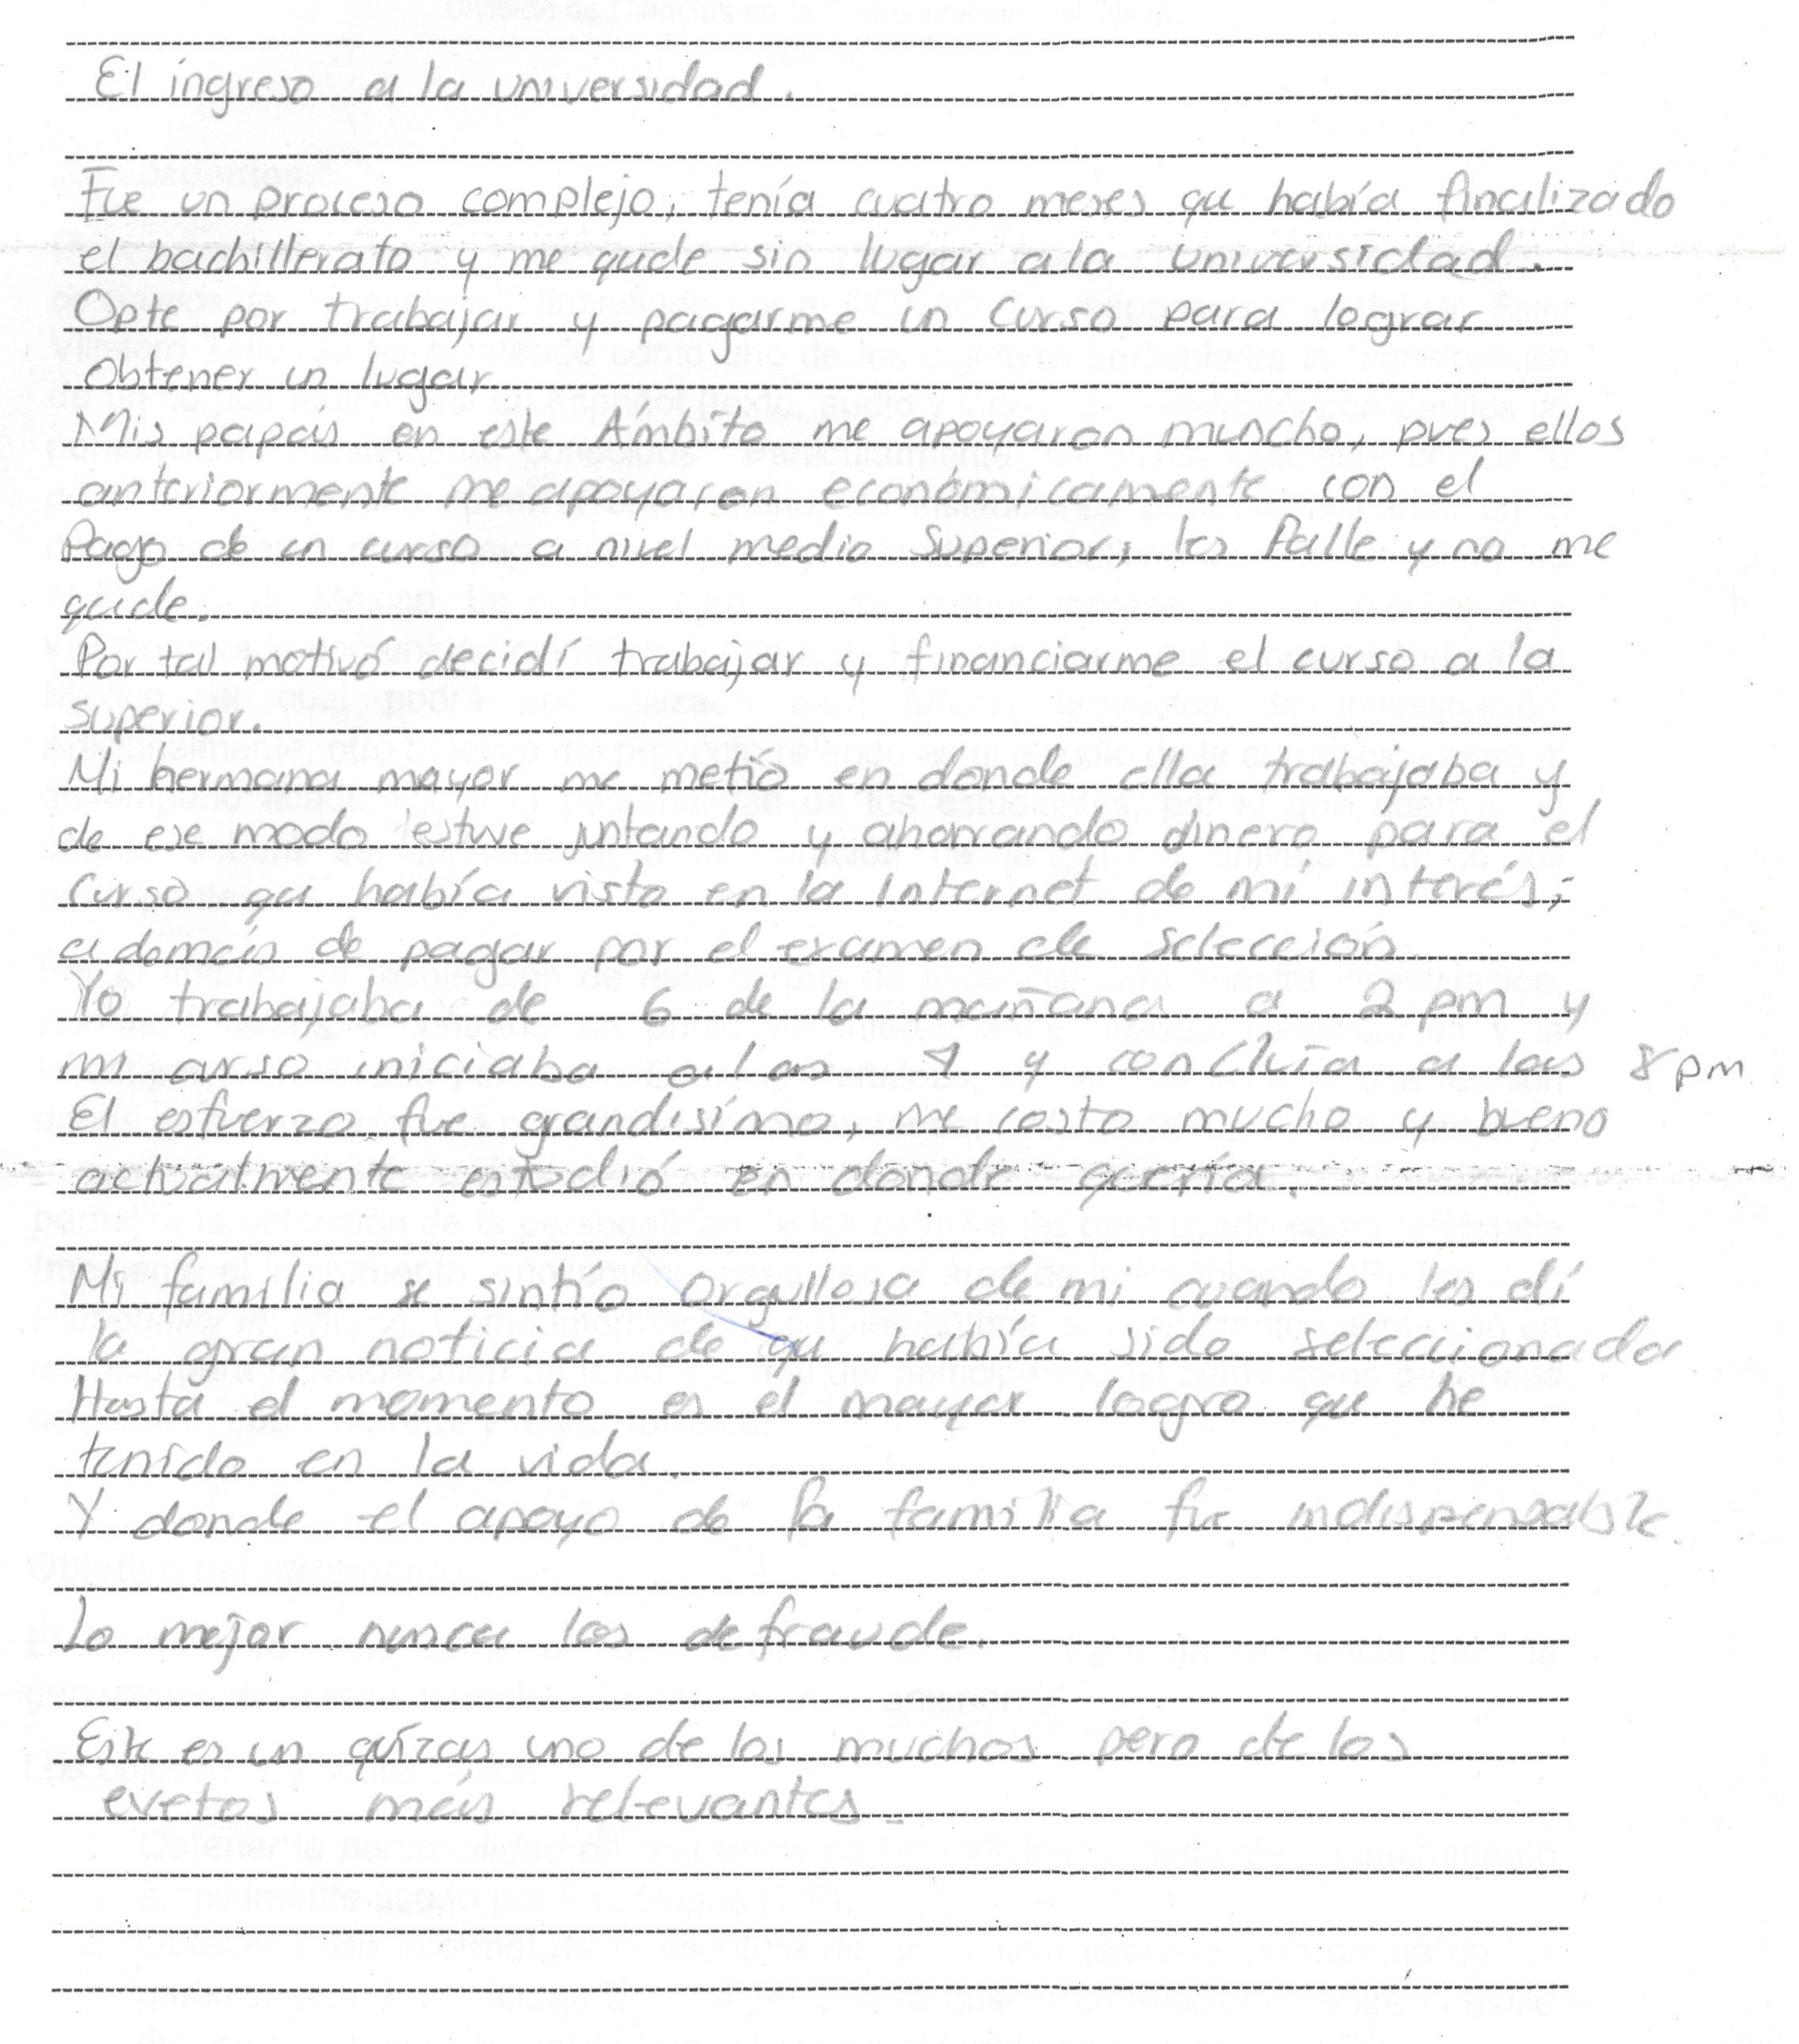 El ingreso a la universidad.
Fue un proceso complejo, tenía cuatro meses qu había finalizado
el bachillerato y me qude sin lugar a la universidad.
Opte por trabajar y pagarme un curso para lograr
Obtener un lugar
Mis papás en este Ámbito me apoyaron muncho, pues ellos
anteriormente me apoyaron económicamente con el
Pago de un curso a nivel medio Superior, les Falle y no me
qude.
Por tal motivó decidí trabajar y financiarme el curso a la
superior.
Mi hermana mayor me metió en donde ella trabajaba y
de ese modo estuve juntando y ahorrando dinero para el
Curso qu había visto en la Internet de mi interés,
ademáis de pagar por el examen de selección
Yo trabajaba de 6 de la mañana a 2 pm y
mi curso iniciaba a las 4 y concluía a las 8 pm
El esfuerzo fue grandisímo, me costo mucho y bueno
actualmente estudió en donde quería.
Mi familia se sintío orgullosa de mi cuando les dí
la gran noticia de qu había sido seleccionada
Hasta el momento es el mayor logro qu he
tenido en la vida.
Y donde el apoyo de la familia fue indispensable.
Lo mejor nunca los defraude.
Este es un quízas uno de los muchos pero de los
evetos más relevantes